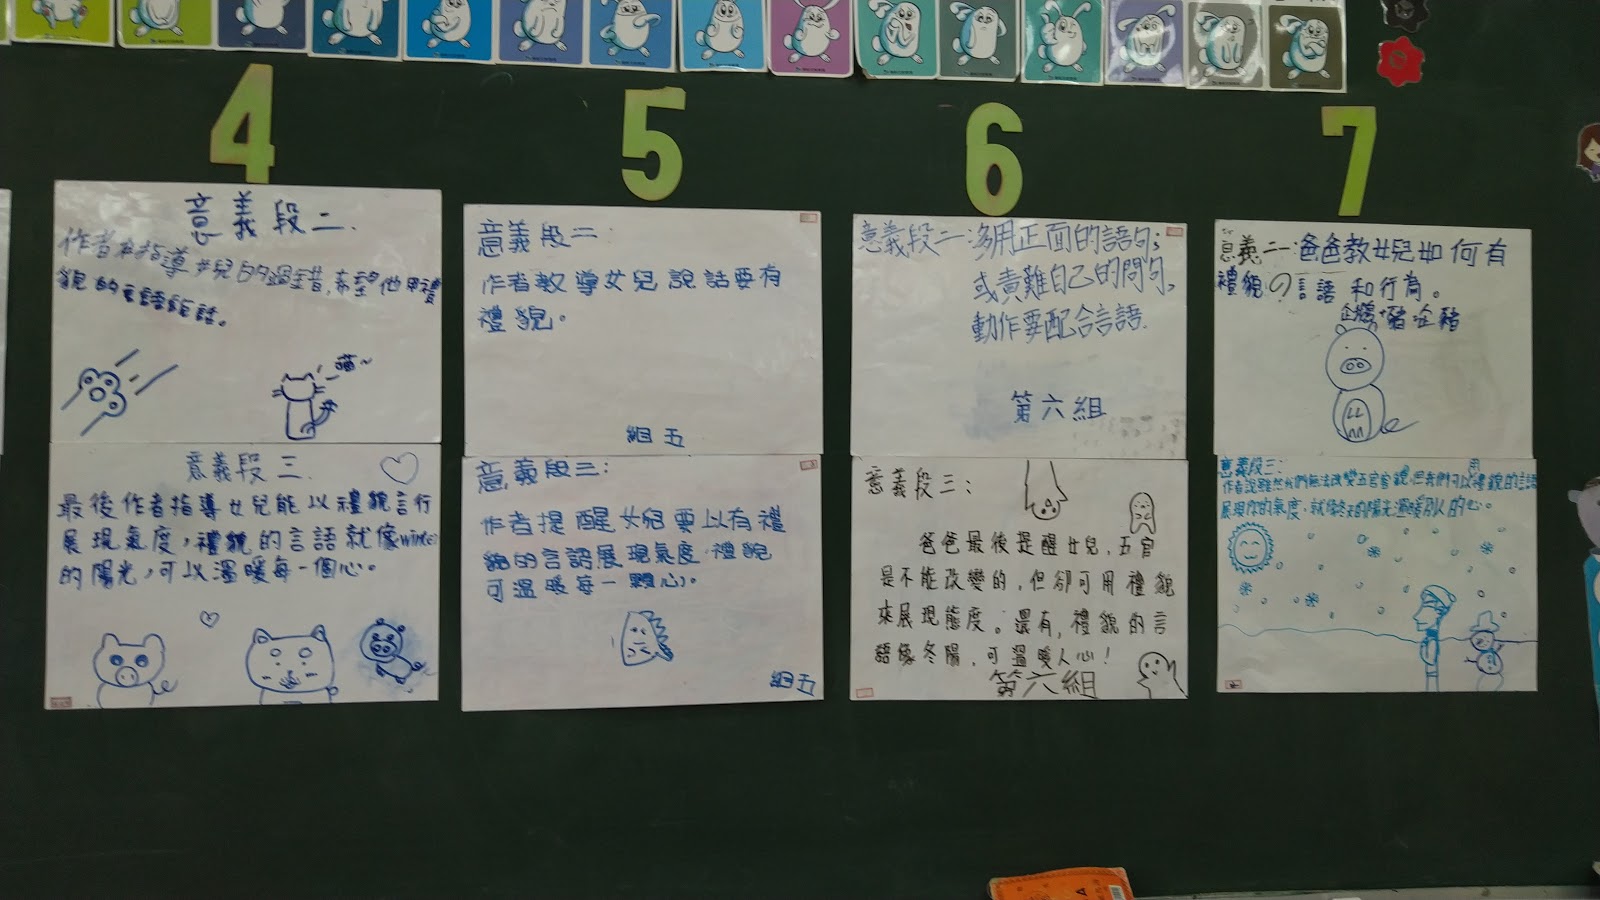 4
意義段二.
作者在指導女兒的過錯,希望他用禮
貌的
話。
喵~
意義段三.
最後作者指導女兒能以禮貌言行
展現氣度,禮貌的言語就像winter
的陽光,可以溫暖每一個心。
5
意義段二:
作者教導女兒說話要有
禮貌。
組五
意義段三:
作者提醒女兒要以有禮
貌的言語展現氣度,禮貌
可溫暖每一顆心。
組五
6
意義段二:多用正面的語句;
或責難自己的問句,
動作要配合言語.
第六組
意義段三:
爸爸最後提醒女兒,五官
是不能改變的,但卻可用禮貌
來展現態度。還有,禮貌的言
語像冬陽,可溫暖人心!
第六組
7
意義二:爸爸教女兒如何有
禮貌の言語和行為。
企鵝+豬=企豬
意義段三:
作者說雖然我們無法改變五官容貌,但我們可以用禮貌的言語
展現你的氣度,就像冬天的陽光溫暖別人的心。